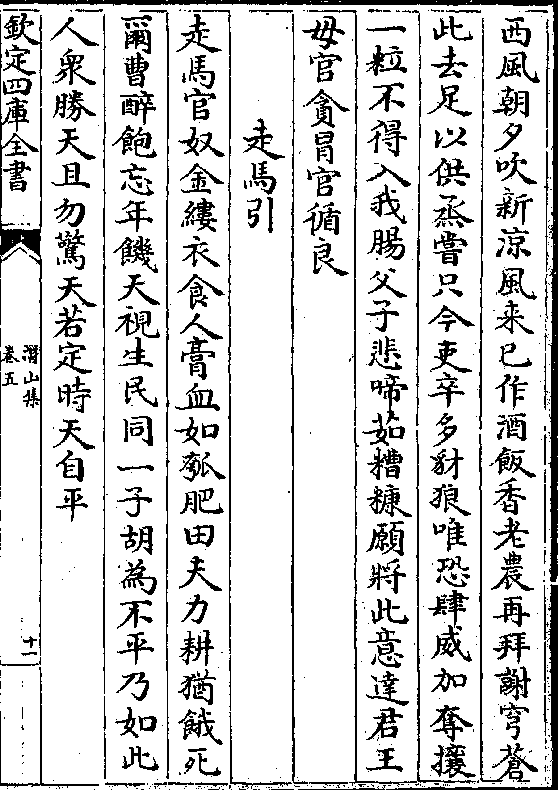 西風朝夕吹新涼風来已作酒飯香老農再拜謝穹蒼
此去足以供烝嘗只今吏卒多豺狼唯恐肆威加奪攘
一粒不得入我腸父子悲啼茹糟糠願將此意達君王
毋官貪冒官循良
走馬引
走馬官奴金縷衣食人膏血如瓠肥田夫力耕猶餓死
爾曹醉飽忘年饑天視生民同一子胡為不平乃如此
人衆勝天且勿驚天若定時天自平
欽定四庫全書
潛山集
卷五
十一